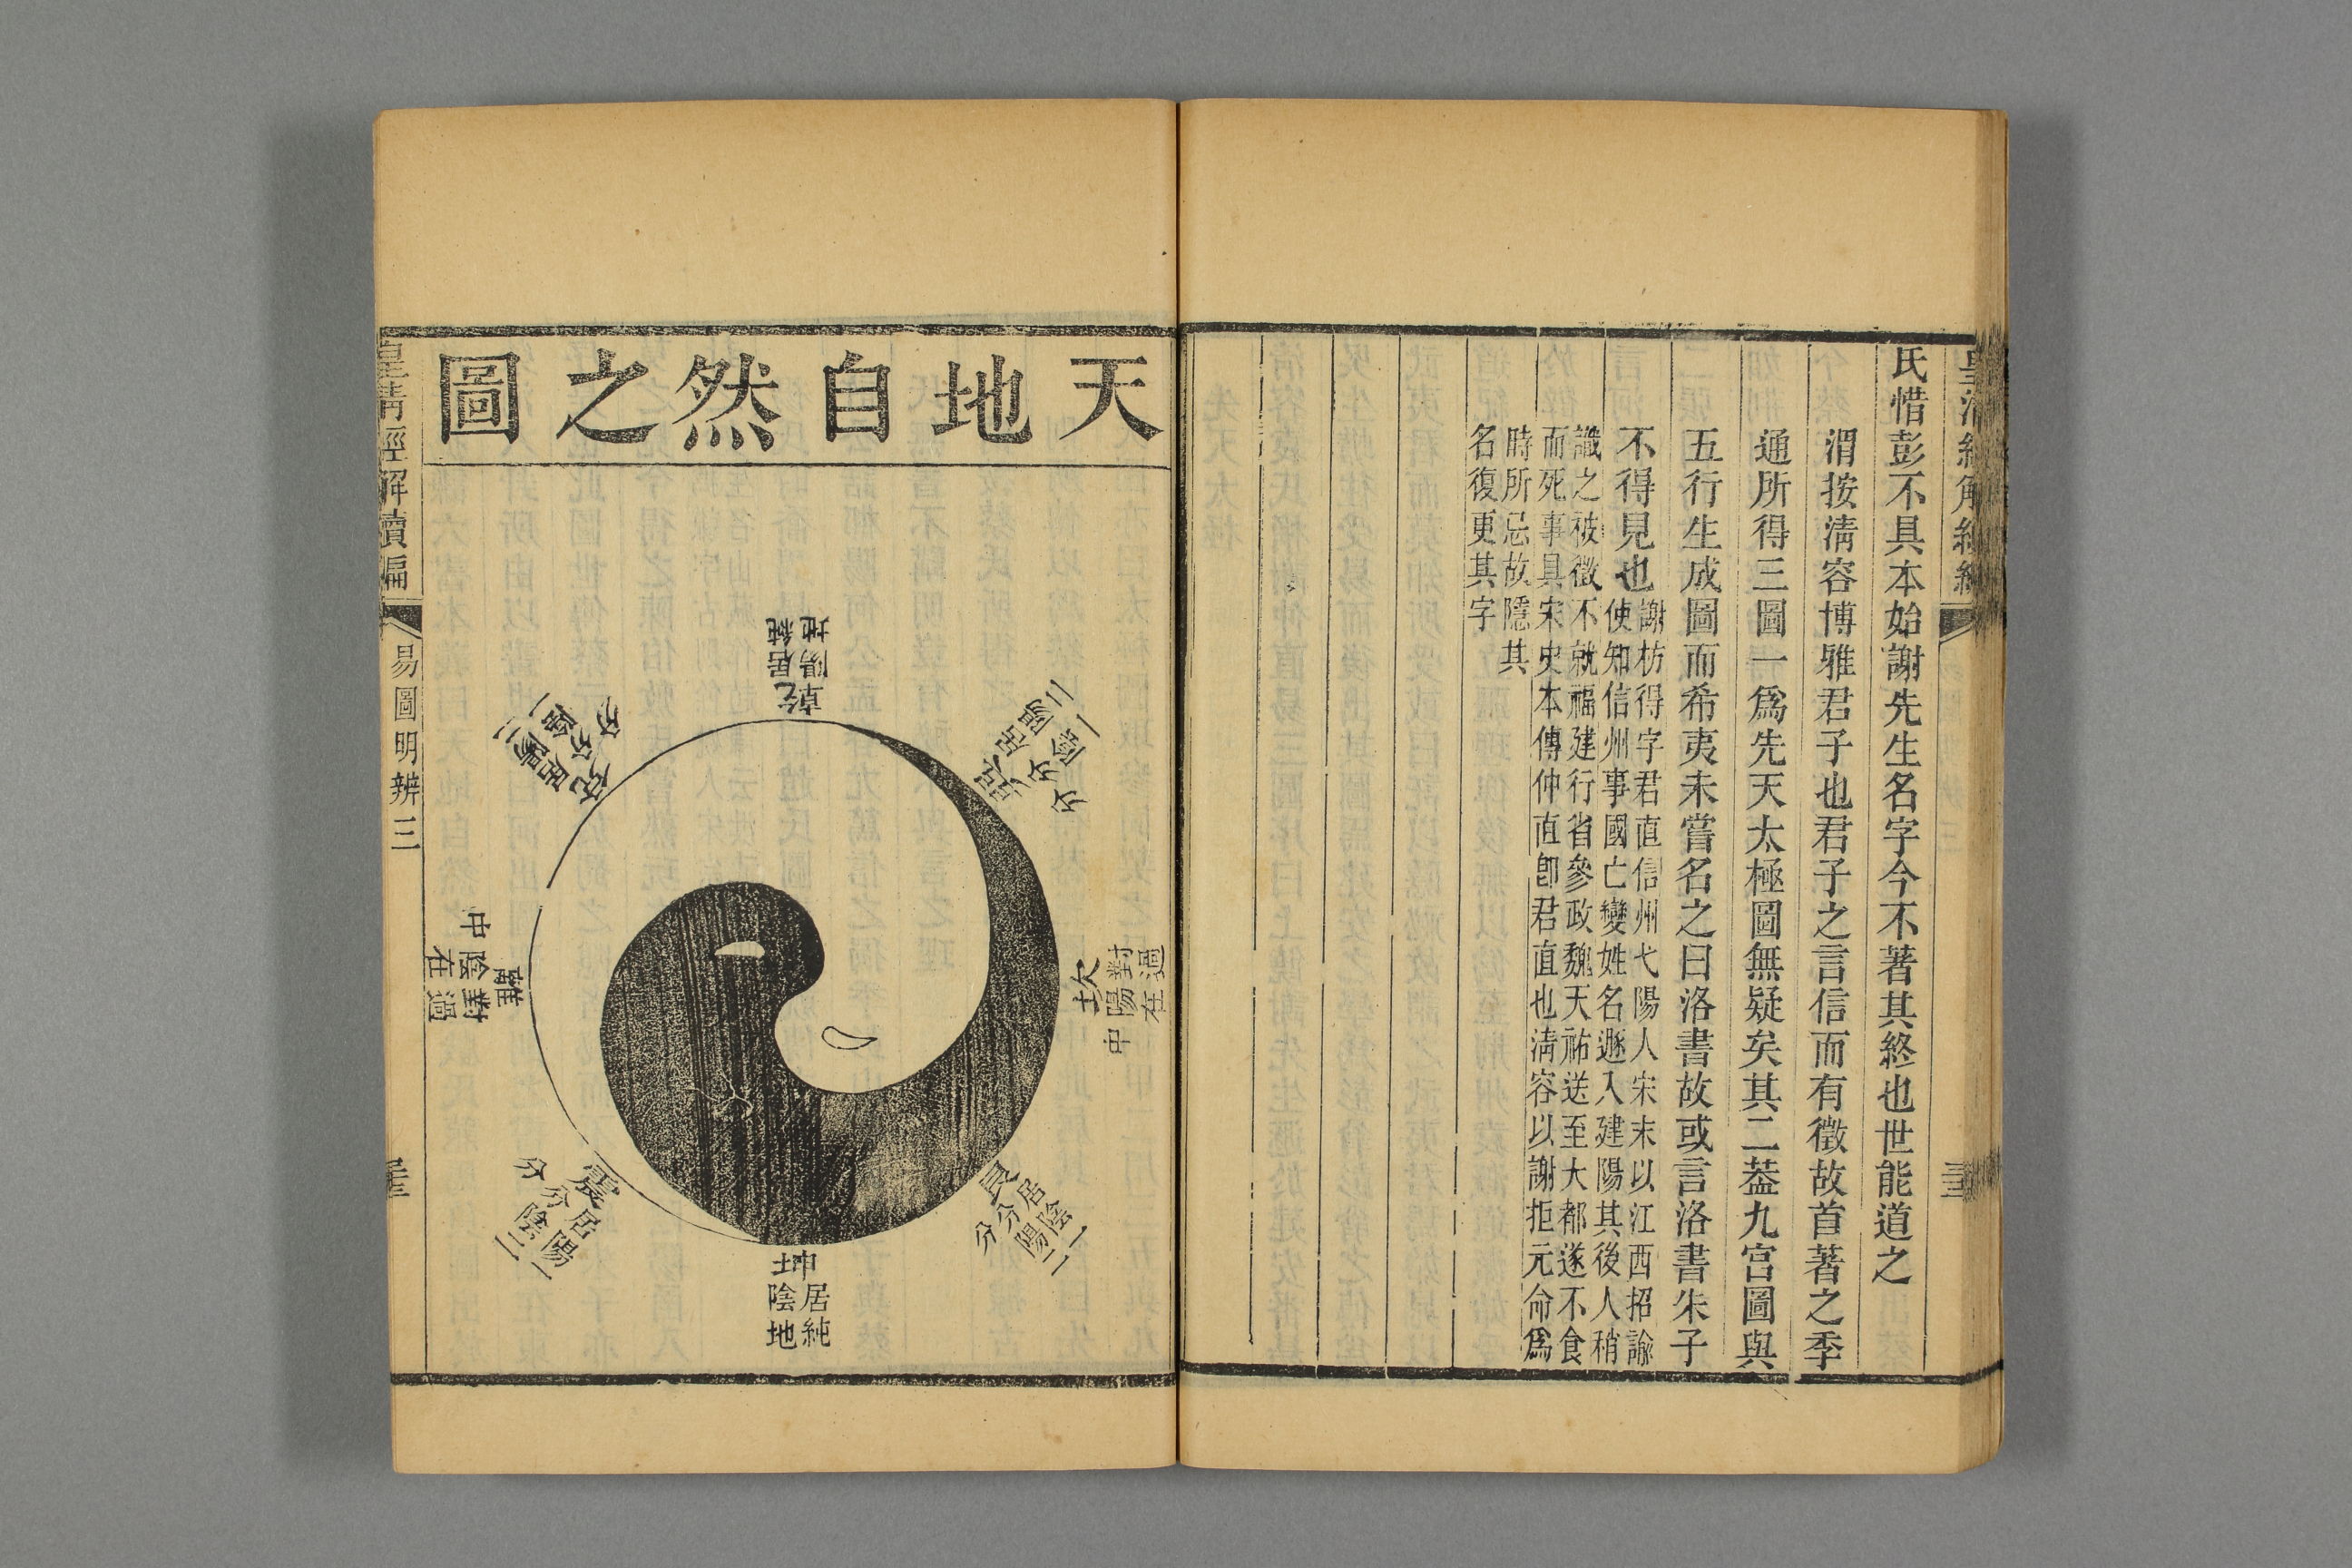 氏惜彭不具本始謝先生名字今不著其終也世能道之
渭按清容博雅君子也君子之言信而有徵故首著之季
通所得三圖一爲先天太極圖無疑矣其二葢九宮圖與
五行生成圖而希夷未嘗名之曰洛書故或言洛書朱子
不得見也
謝枋得字君直信州弋陽人宋末以江西招諭
使知信州事國亡變姓名遯入建陽其後人稍
識之被徵不就福建行省參政魏天祐送至大都遂不食
而死事具宋史本傳仲直卽君直也清容以謝拒元命爲
時所忌故隱其
名復更其字
天地自然之圖
乾居純
陽地
兌居陽二
分陰一
分
離對過
陰在
中
震居陽一
分陰二
分
坤居純
陰地
艮居陰二
分陽一
分
坎對過
陽在
中
巽居陽二
分陰一
分
皇清經解續編
易圖明辨三